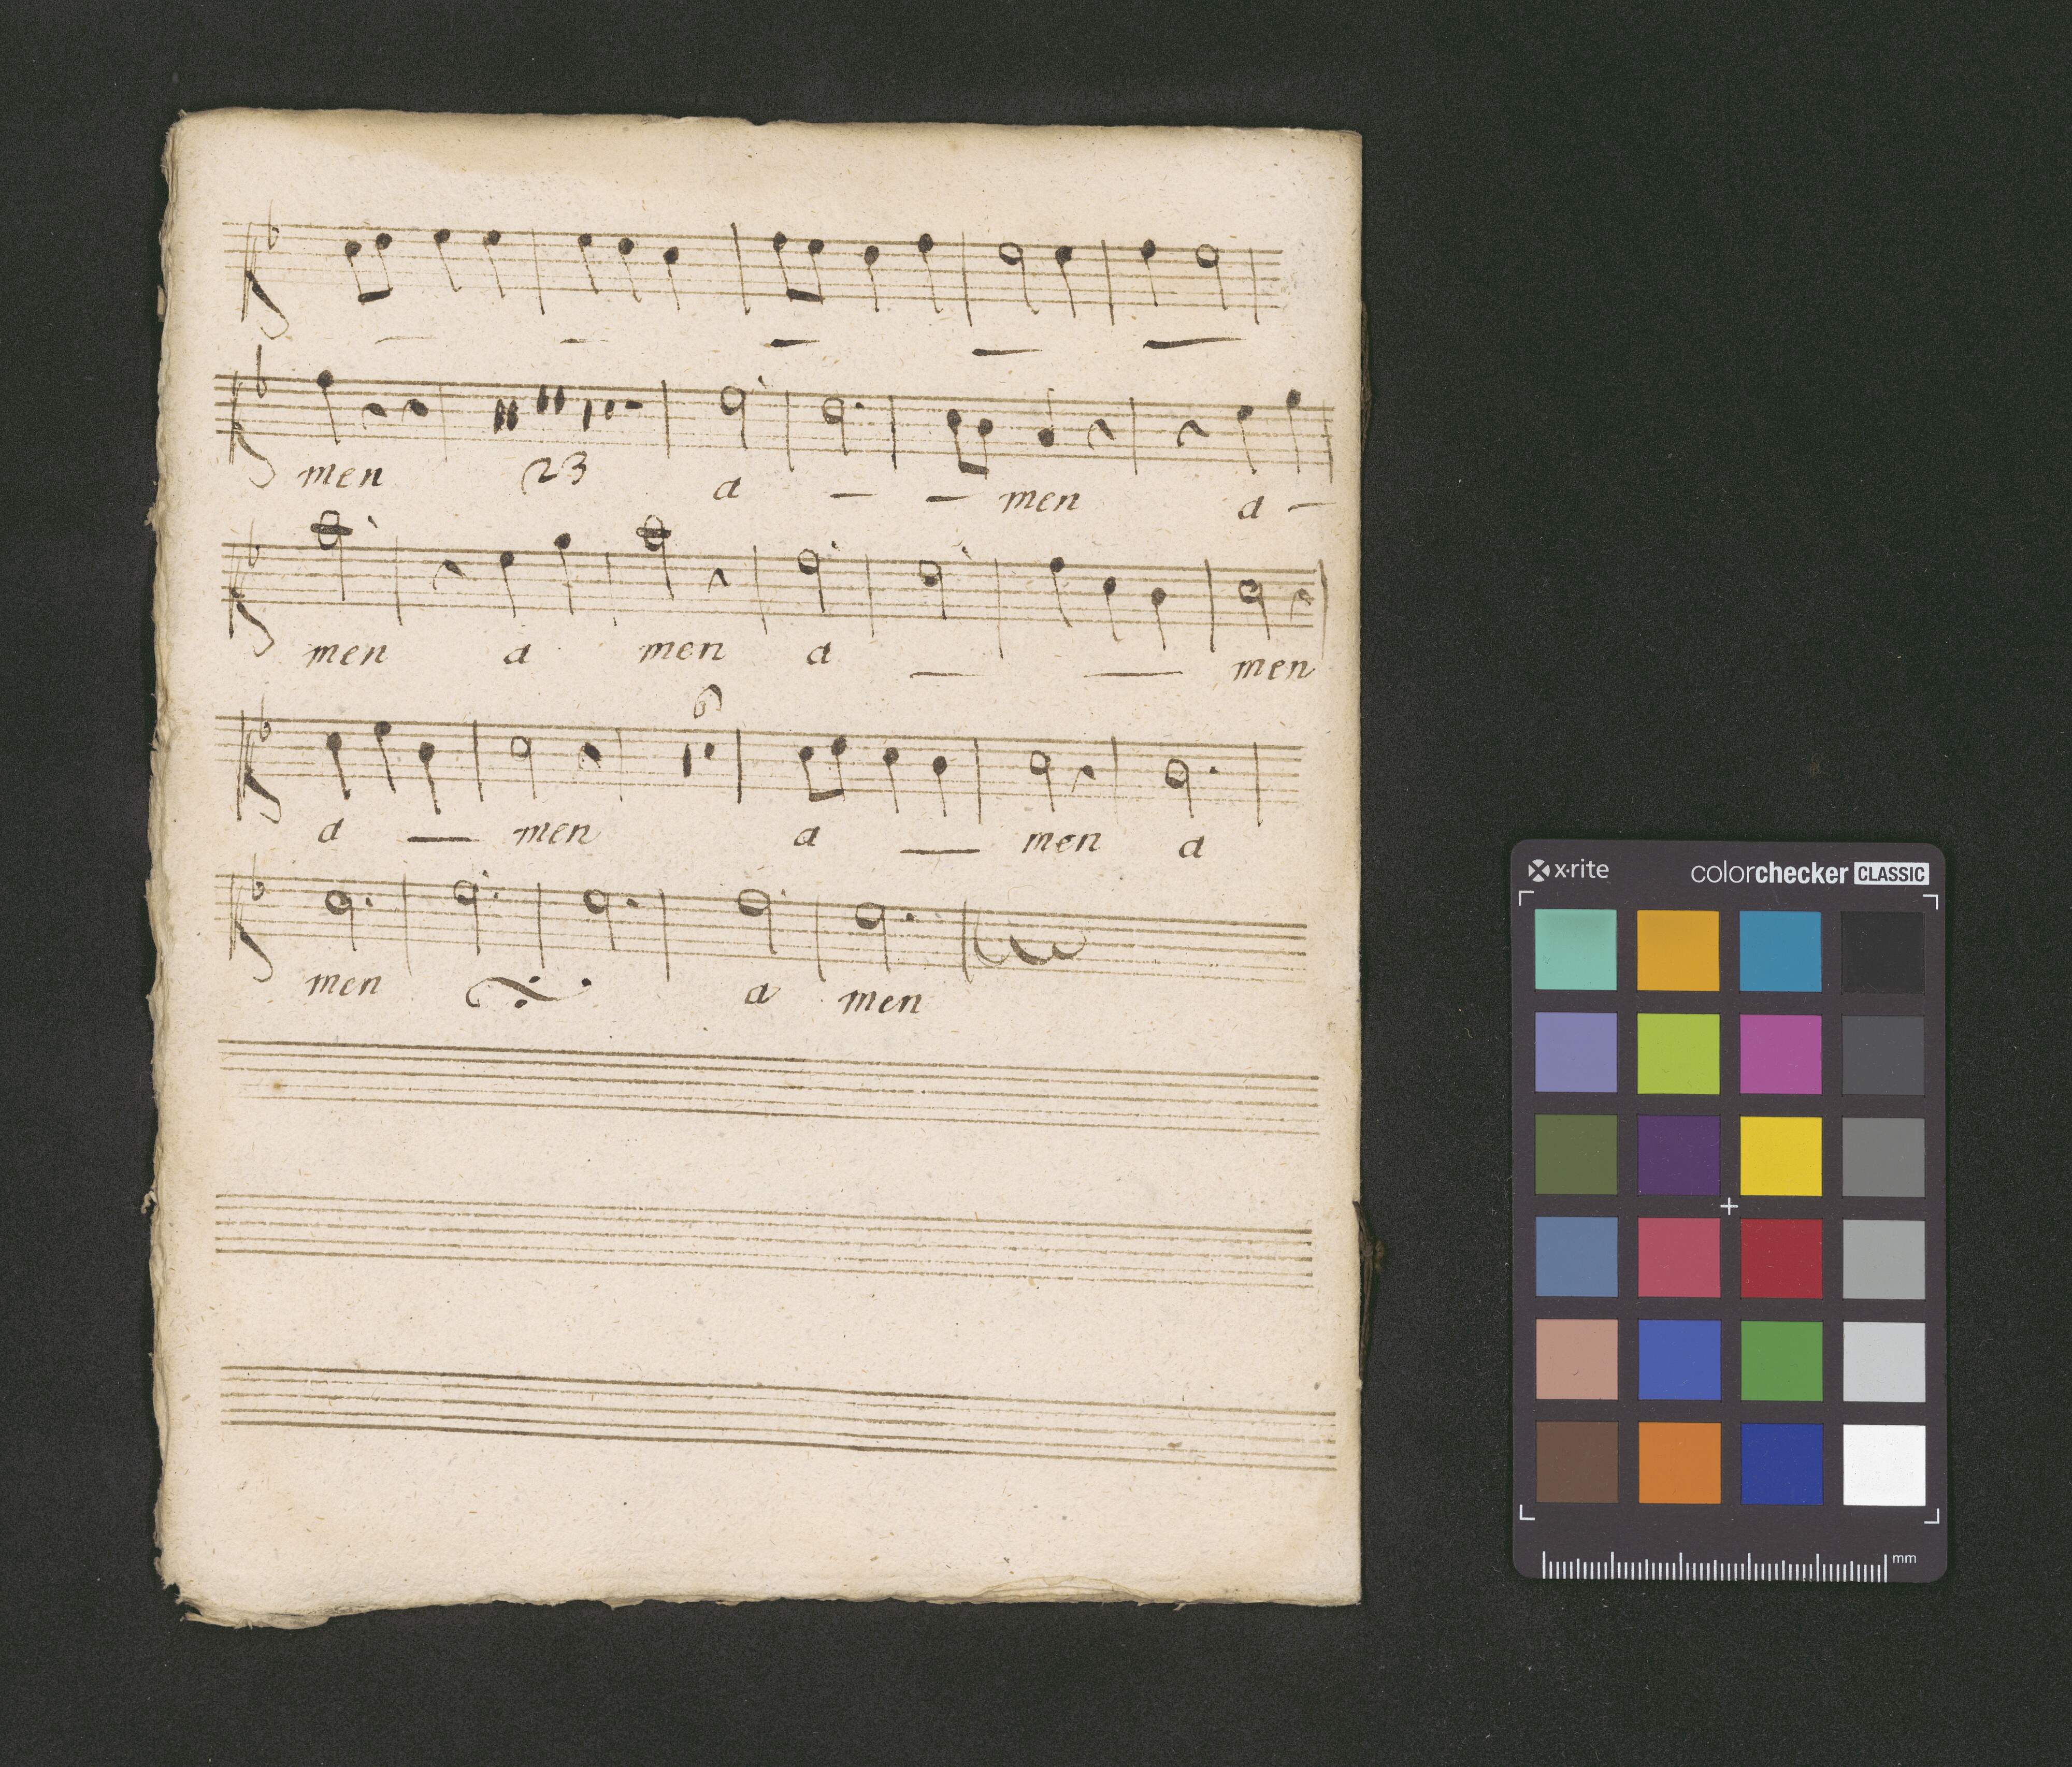 men 23 a men a
men a men a men
6
a men a men a
men a men
x·rite colorchecker CLASSIC
mm